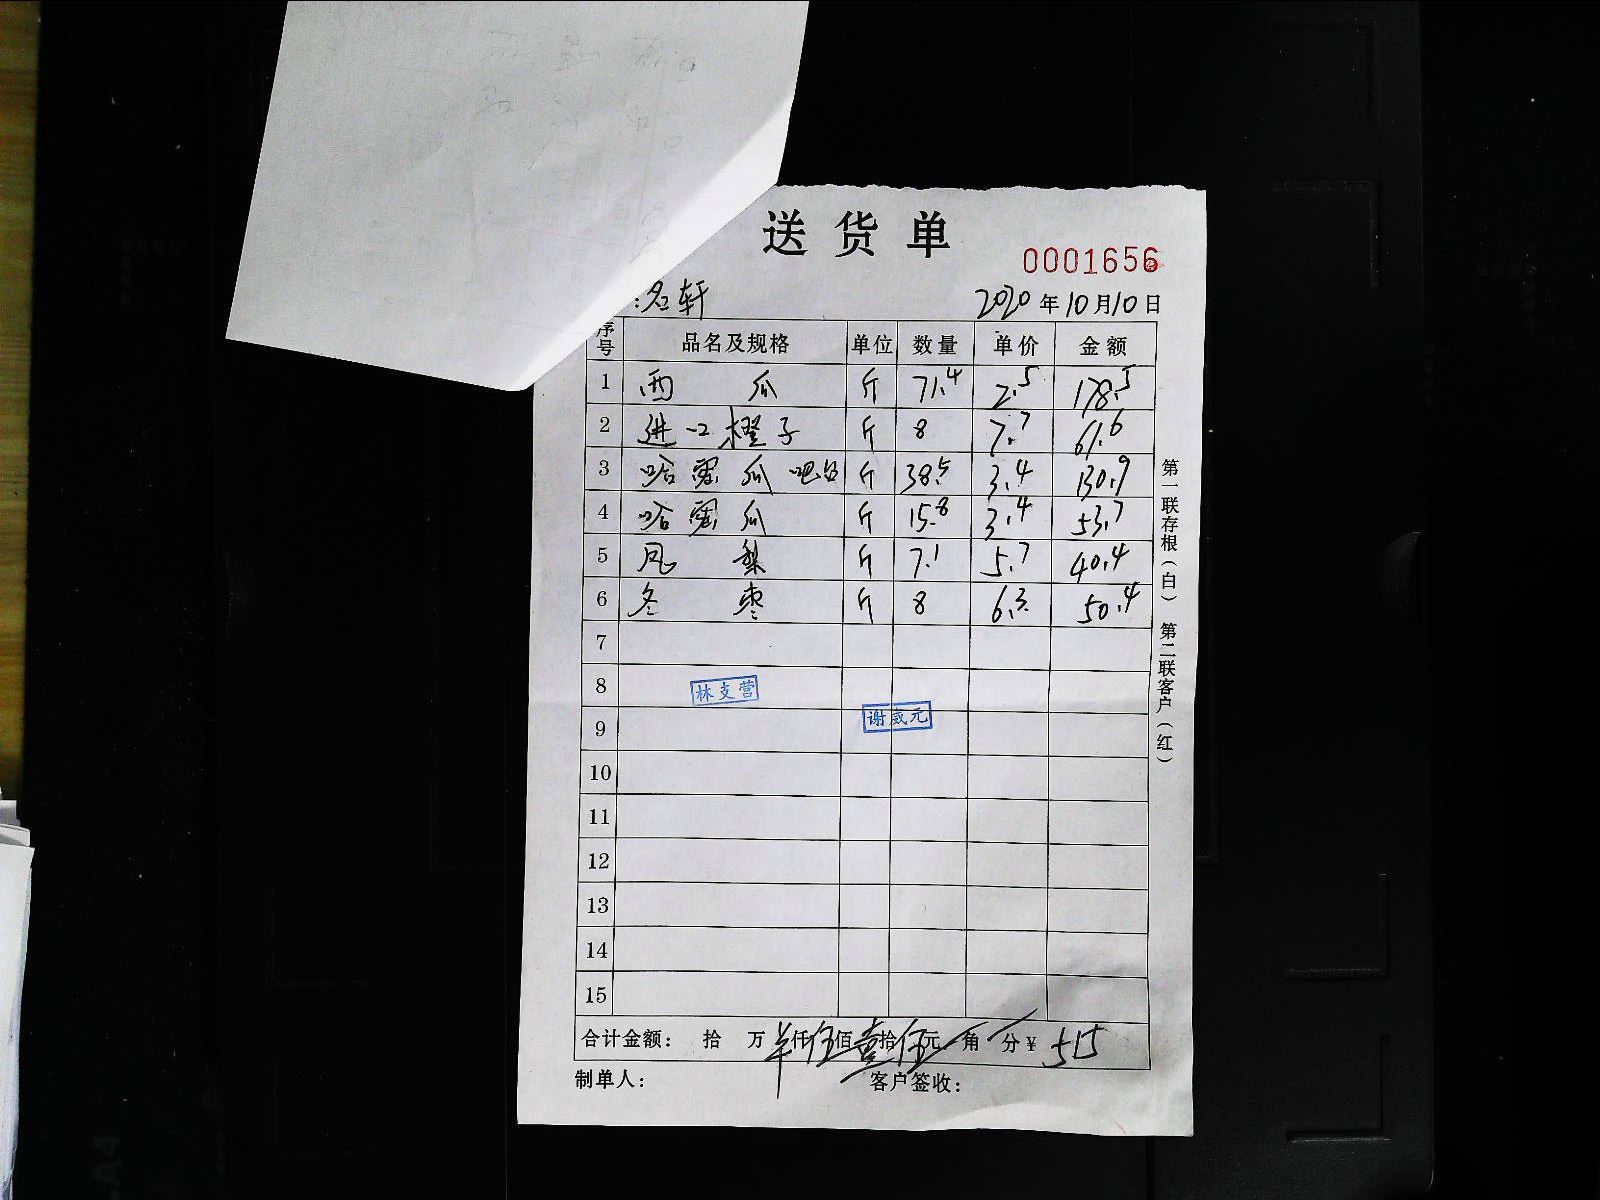 送货单
0001656
:名轩 2020年10月10日
序号 品名及规格 单位 数量 单价 金额
1 西瓜 斤 71.4 2.5 178.5
2 进口橙子 斤 8 7.7 61.6
3 哈密瓜吧台 斤 38.5 3.4 130.9
4 哈密瓜 斤 15.8 3.4 53.7
5 凤梨 斤 7.1 5.7 40.4
6 冬枣 斤 8 6.3 50.4
7
8
林支营
谢或元
9
10
11
12
13
14
15
合计金额: 拾 万 仟伍佰壹拾伍元 角 分¥ 515
制单人: 客户签收:
第一联存根(白) 第二联客户(红)